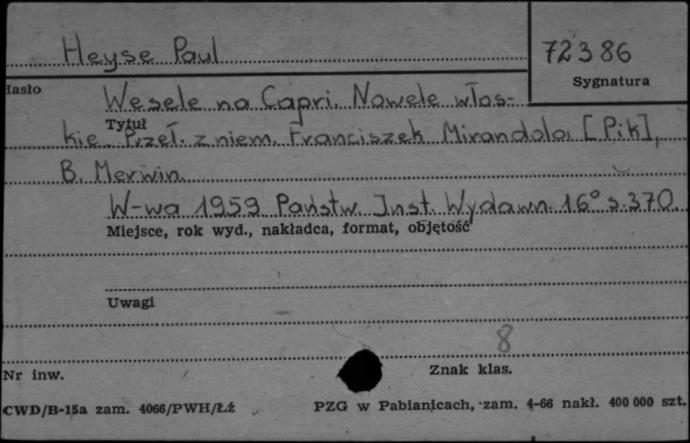 Heyse Paul
72386
Sygnatura
Hasło
Wesele na Capri. Nowele włos-
Tytuł
kie. Przeł. z niem. Franciszek Mirandola [Pik],
B. Merwin.
W-wa 1959 Państw. Inst. Wydawn. 16° s. 370.
Miejsce, rok wyd., nakładca, format, objętość
Uwagi
8
Nr inw.
Znak klas.
CWD/B-15a zam. 4066/PWH/Łź
PZG w Pabianicach, zam. 4-66 nakł. 400 000 szt.